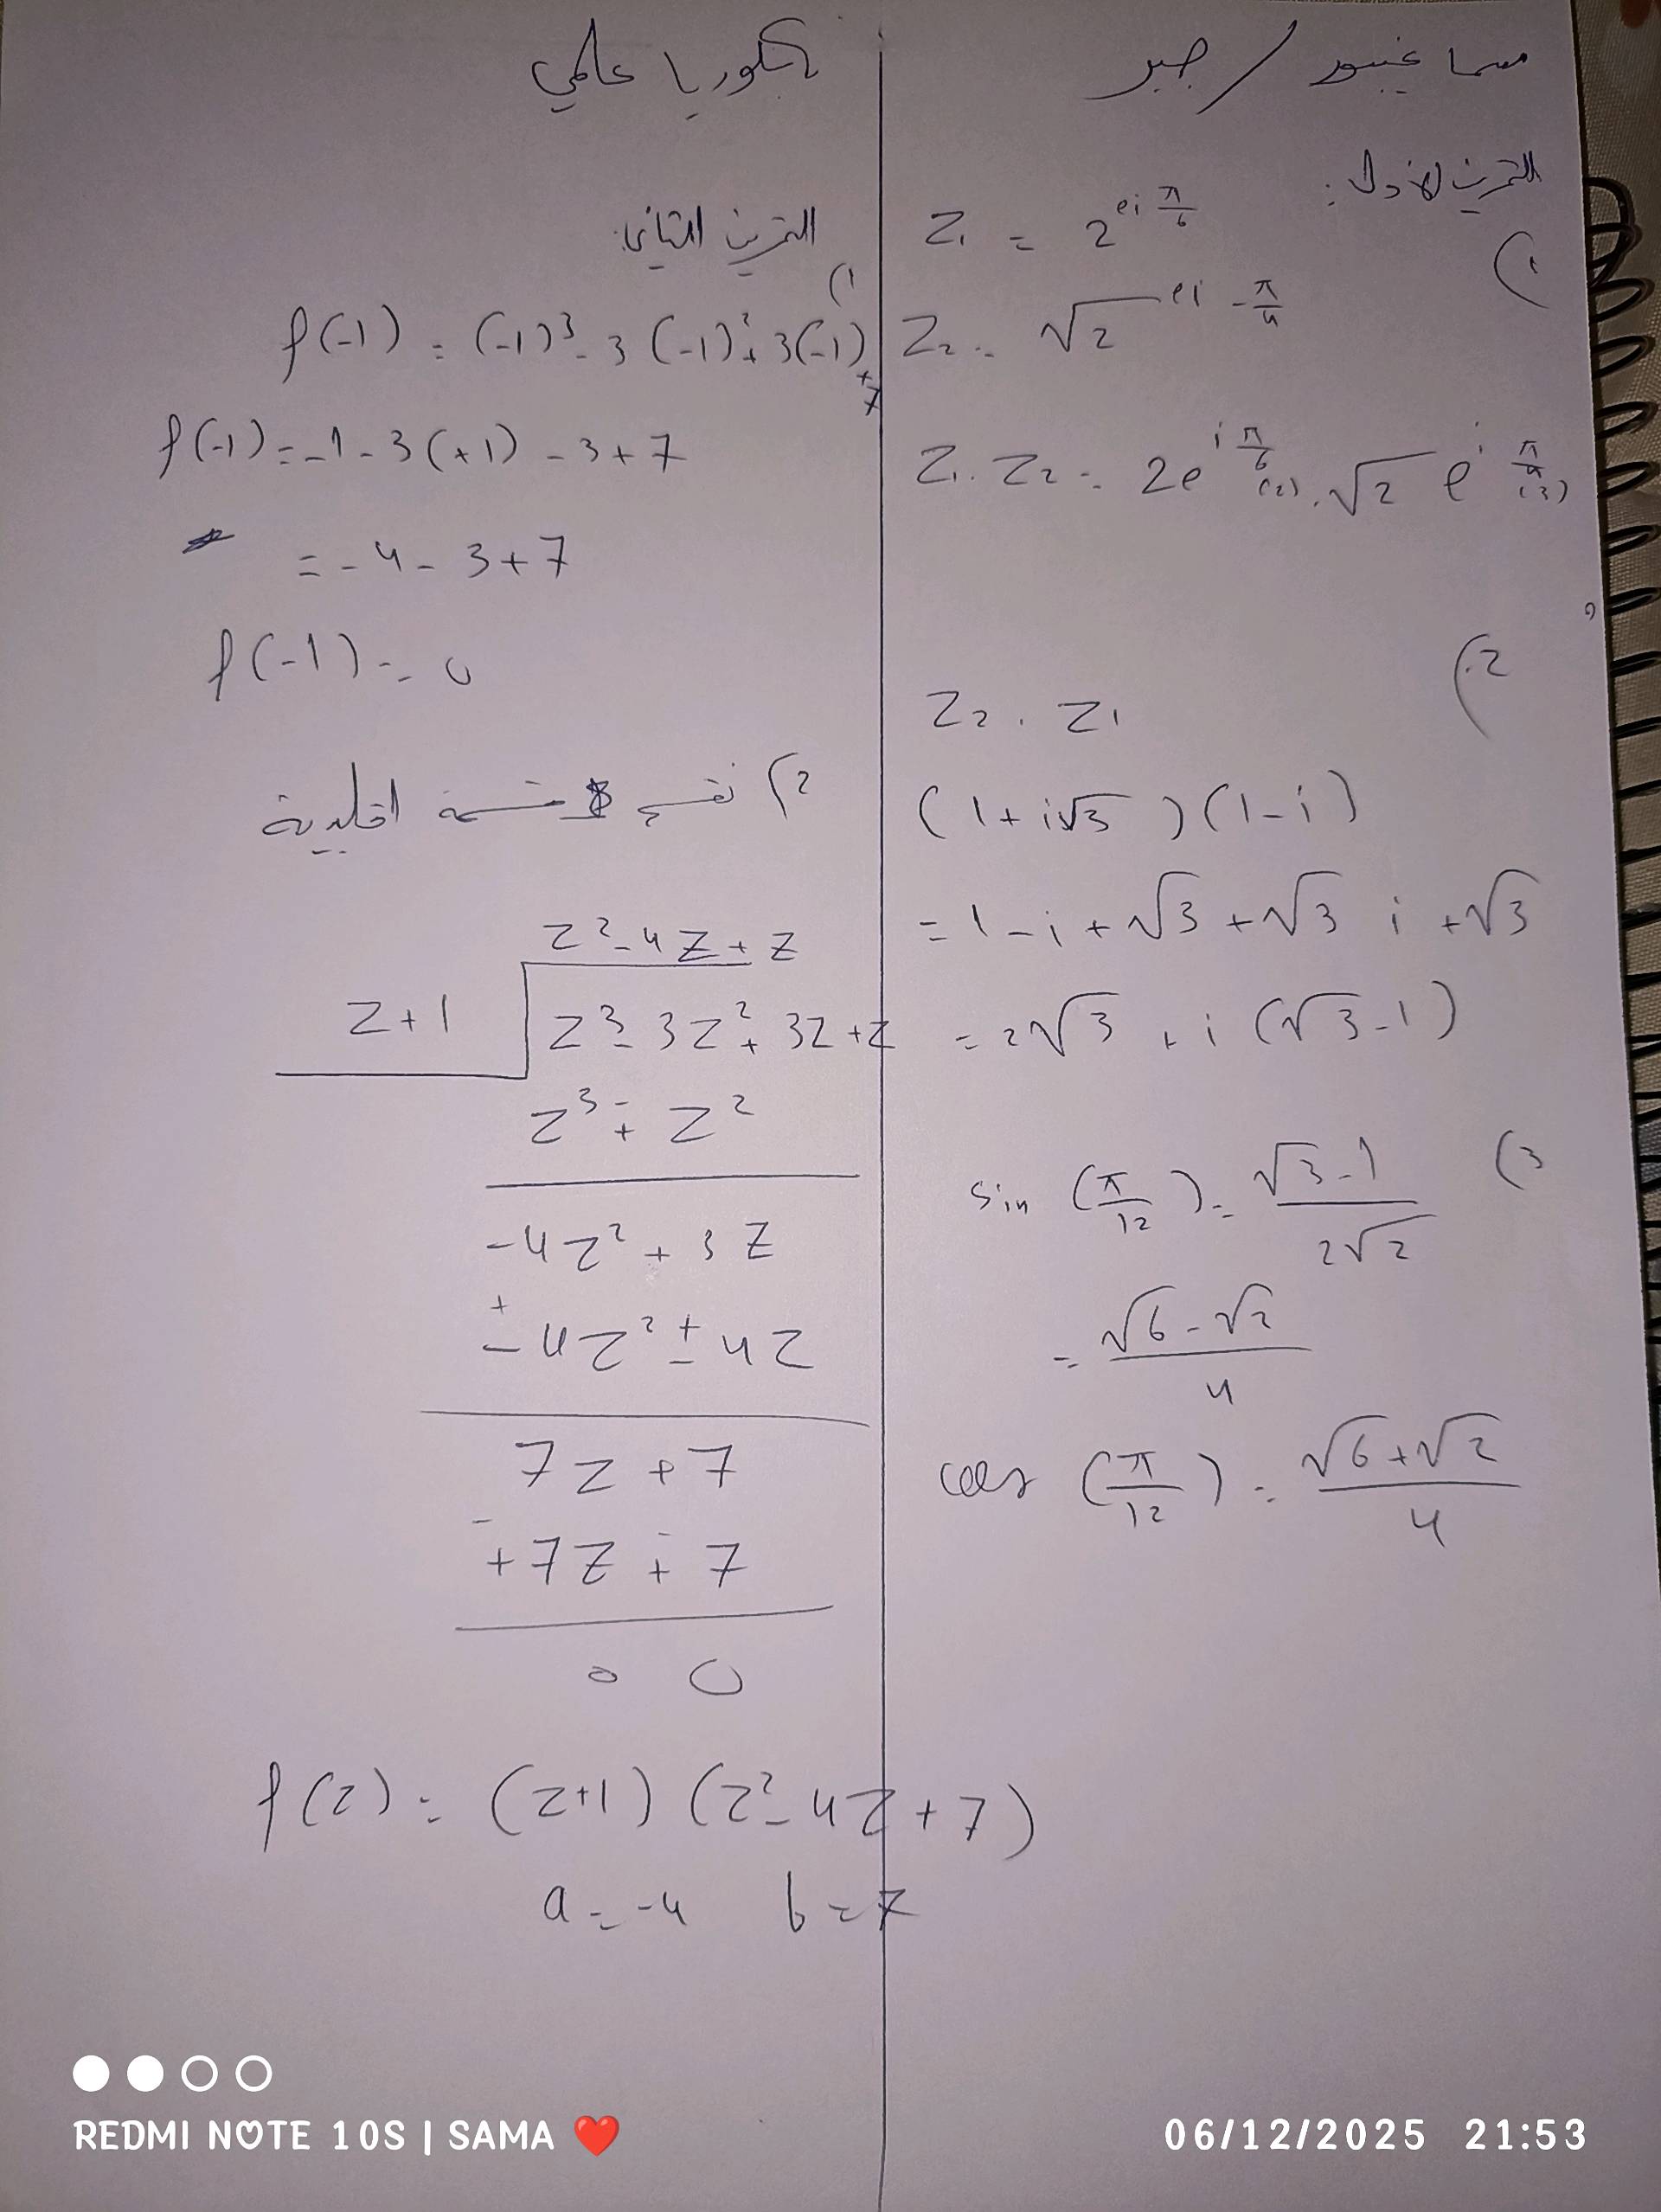 سما غيبور / جبر
بكلوريا علمي
التمرين الأول:
1)
Z₁ = 2^{ei π/6}
Z₂ = √2^{ei -π/4}
Z₁ . Z₂ = 2e^{i π/6 (2)} . √2 e^{i π/4 (3)}
2)
Z₂ . Z₁
(1+i√3)(1-i)
= 1-i+√3+√3 i +√3
= 2√3 + i(√3-1)
3)
sin (π/12) = (√3-1)/(2√2)
= (√6-√2)/4
cos (π/12) = (√6+√2)/4
التمرين الثاني:
1)
f(-1) = (-1)³-3(-1)²+3(-1)+7
f(-1) = -1-3(+1)-3+7
= -4-3+7
f(-1) = 0
2) نقسم قسمة اقليدية
z²-4z+z
z+1
z³-3z²+3z+z
z³ ∓ z²
-4z²+3z
∓4z² ± 4z
7z+7
-
+7z ∓ 7
0 0
f(z) = (z+1)(z²-4z+7)
a = -4 b = 7
REDMI NOTE 10S | SAMA ❤️
06/12/2025 21:53